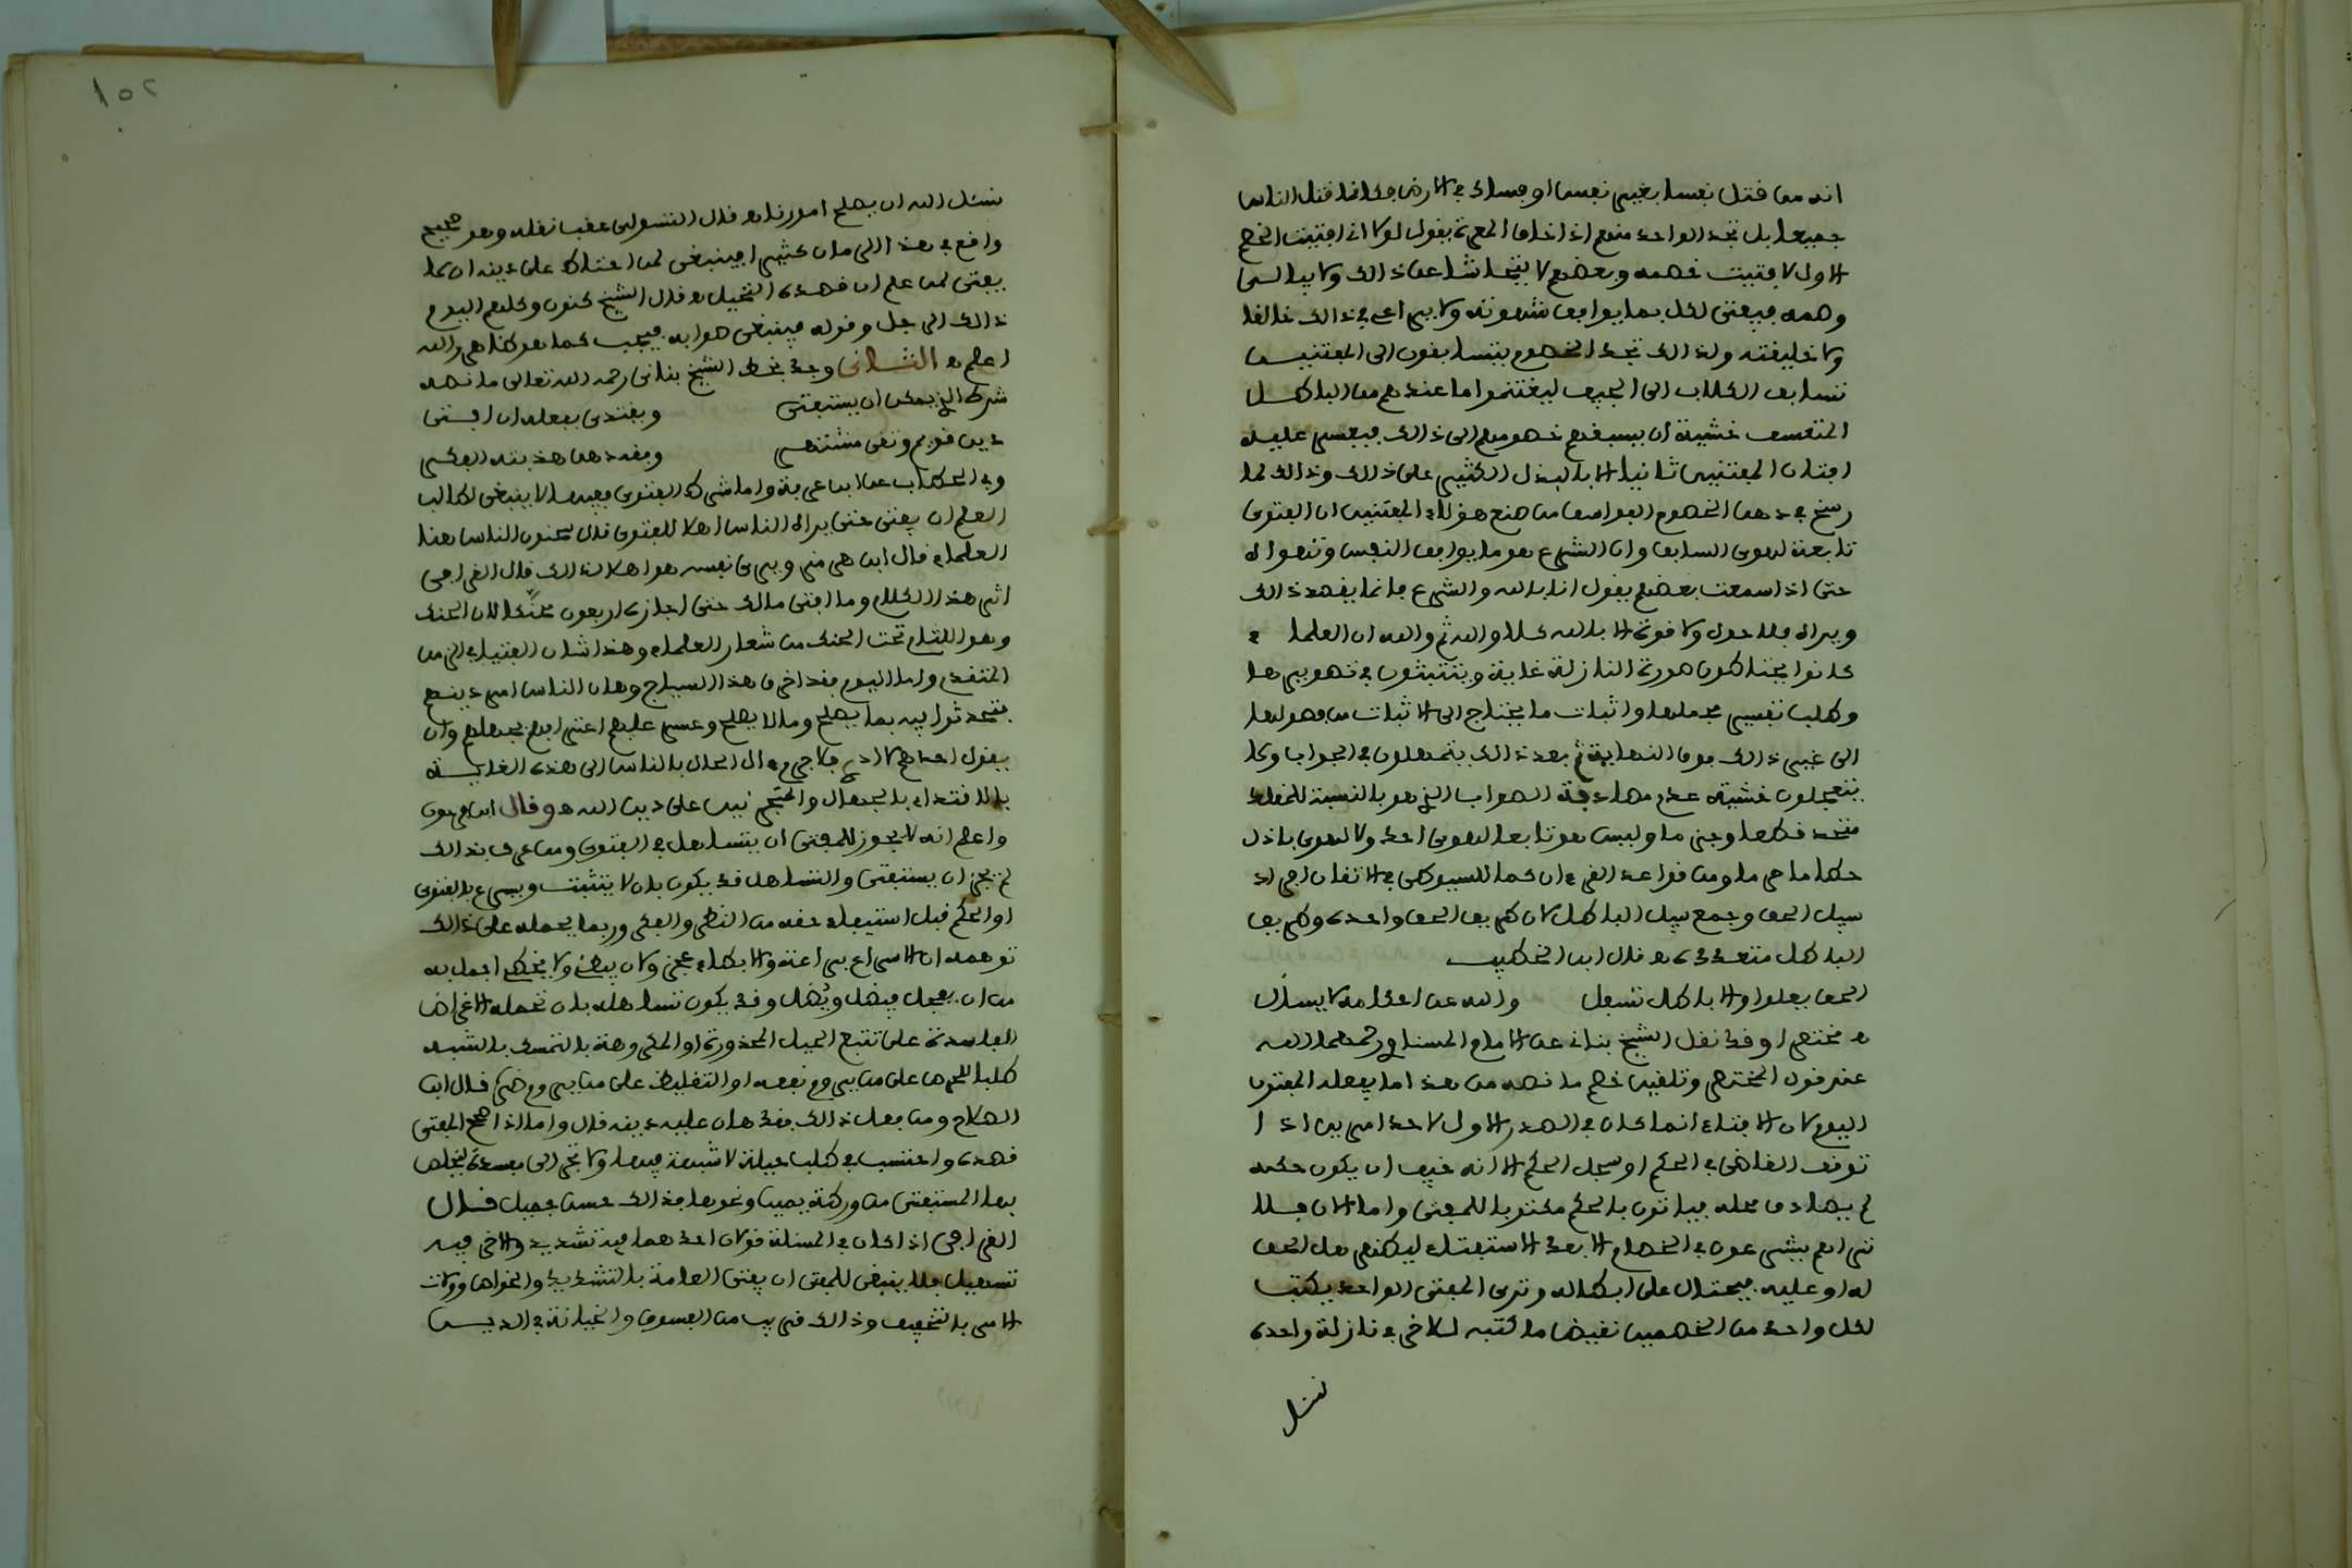 انه من قتل نفسا بغير نفس او فساد في الارض فكانما قتل الناس
جميعا بل تجد الواحد منهم اذا اخذ الحجرة يقول لولا اني افتيت الخصم
الاول لافتيت خصمه وبعضهم لا يتحاشا عن ذالك ولا يبالي
وهمه فيفتي لكل بما يوافق شهوته ولا يراعي في ذالك خالقا
ولا خليفته ولذالك تجد الخصوم يتسابقون الى المفتيين
تسابق الكلاب الى الجيف ليغتنموا ما عندهم من الباطل
المتعسف خشية ان يسبقهم خصومهم الى ذالك فيعسر عليه
افتان المفتيين ثانيا الا بالبذل الكثير على ذالك وذالك لما
رسخ في ذهن الخصوم من صنع هؤلاء المفتيين ان الفتوى
تابعة لهوى السابق وان الشرع هو ما يوافق النفس وتهواه
حتى اذا سمعت بعضهم يقول انا بالله والشرع فانما يقصد ذالك
ويراه فلا حول ولا قوة الا بالله كلا والله ثم والله ان العلماء
كانوا يحتاطون صورة النازلة غاية ويتثبتون في تصويرها
وطلب تفسير مجملها واثبات ما يحتاج الى الاثبات من فصولها
الى غير ذالك فوق النهاية ثم بعد ذالك يتمهلون في الجواب ولا
يتعجلون خشية عدم مصادفة الصواب الذي هو بالنسبة للمقلد
متحد قطعا وجزما وليس هو تابعا لهوى احد ولا لهوى باذل
حطاما حراما ومن قواعد القرءان كما للسيوطي في الاتقان افراد
سبيل الحق وجمع سبيل الباطل لان طريق الحق واحدة وطريق
الباطل متعددة ه قال ابن الخطيب
الحق يعلو والاباطل تسفل والله عن احكامه لا يسأل
ه مختصرا وقد نقل الشيخ بناني عن الامام المسناوي رحمهما الله
عند قول المختصر وتلقين خصم ما نصه من هذا ما يفعله المفتون
اليوم لان الافتاء انما كان في الصدر الاول لاحد امرين اذا
توقف القاضي في الحكم او سجل الحكم الا انه خيف ان يكون حكمه
لم يصادف محله فياتون بالحكم مكتوبا للمفتي واما الان فلا
تراهم يشرعون في الخصام الا بعد الاستفتاء لينظر هل الحق
له او عليه فيحتال على ابطاله وترى المفتي الواحد يكتب
لكل واحد من الخصمين نقيض ما كتبه للاخر في نازلة واحدة
نسئل
١٥٢
نسئل الله ان يصلح امورنا ه قال التسولي عقب نقله وهو صحيح
واقع في هذا الزمان كثيرا فينبغي لمن احتاط على دينه ان لا
يفتي لمن علم ان قصده التحيل ه قال الشيخ كنون وكلهم اليوم
ذالك الرجل وقوله فينبغي صوابه فيجب كما هو ظاهر والله
اعلم ه الثاني وجد بخط الشيخ بناني رحمه الله تعالى ما نصه
شرط الذي يمكن ان يستفتى ويقتدى بفعله ان افتى
دين قويم وتقى مشتهر وبعد ذهن هذبته الفكر
وفي الحطاب عن ابن عرفة واما شرط الفتوى ففيها لا ينبغي لطالب
العلم ان يفتي حتى يراه الناس اهلا للفتوى قال سحنون الناس هنا
العلماء قال ابن هرمز ويرى نفسه هو اهلا لذالك قال القرافي
اثر هذا الكلام وما افتى مالك حتى اجازه اربعون محنكا لان الحنك
وهو اللثام تحت الحنك من شعار العلماء وهذا شأن الفتيا في الزمن
المتقدم واما اليوم فقد اخرق هذا السياج وهان الناس امر دينهم
فتحدثوا فيه بما يصلح وما لا يصلح وعسر عليهم اعترافهم بجهلهم وان
يقول احدهم لا ادري فلا جرم ءال الحال بالناس الى هذه الغاية
بالاقتداء بالجهال والمتجرئين على دين الله ه وقال ابن فرحون
واعلم انه لا يجوز للمفتي ان يتساهل في الفتوى ومن عرف بذالك
لم يجز ان يستفتى والتساهل قد يكون بان لا يتثبت ويسرع بالفتوى
او الحكم قبل استيفاء حقه من النظر والفكر وربما يحمله على ذالك
توهمه ان الاسراع براعة والابطاء عجز ولان يبطئ ولا يخطئ اجمل به
من ان يعجل فيضل ويضل وقد يكون تساهله بان تحمله الاغراض
الفاسدة على تتبع الحيل المحذورة او المكروهة بالتمسك بالشبه
طلبا للحرص على من يروم نفعه او التغليظ على من يروم ضره قال ابن
الصلاح ومن فعل ذالك فقد هان عليه دينه قال واما اذا صح المفتي
قصده واحتسب في طلب حيلة لا شبهة فيها ولا تجر الى مفسدة ليتخلص
بها المستفتي من ورطة يمين ونحوها فذالك حسن جميل قال
القرافي اذا كان في المسئلة قولان احدهما فيه تشديد والاخر فيه
تسهيل فلا ينبغي للمفتي ان يفتي العامة بالتشديد والخواص وولاة
الامر بالتخفيف وذالك قريب من الفسوق والخيانة في الدين